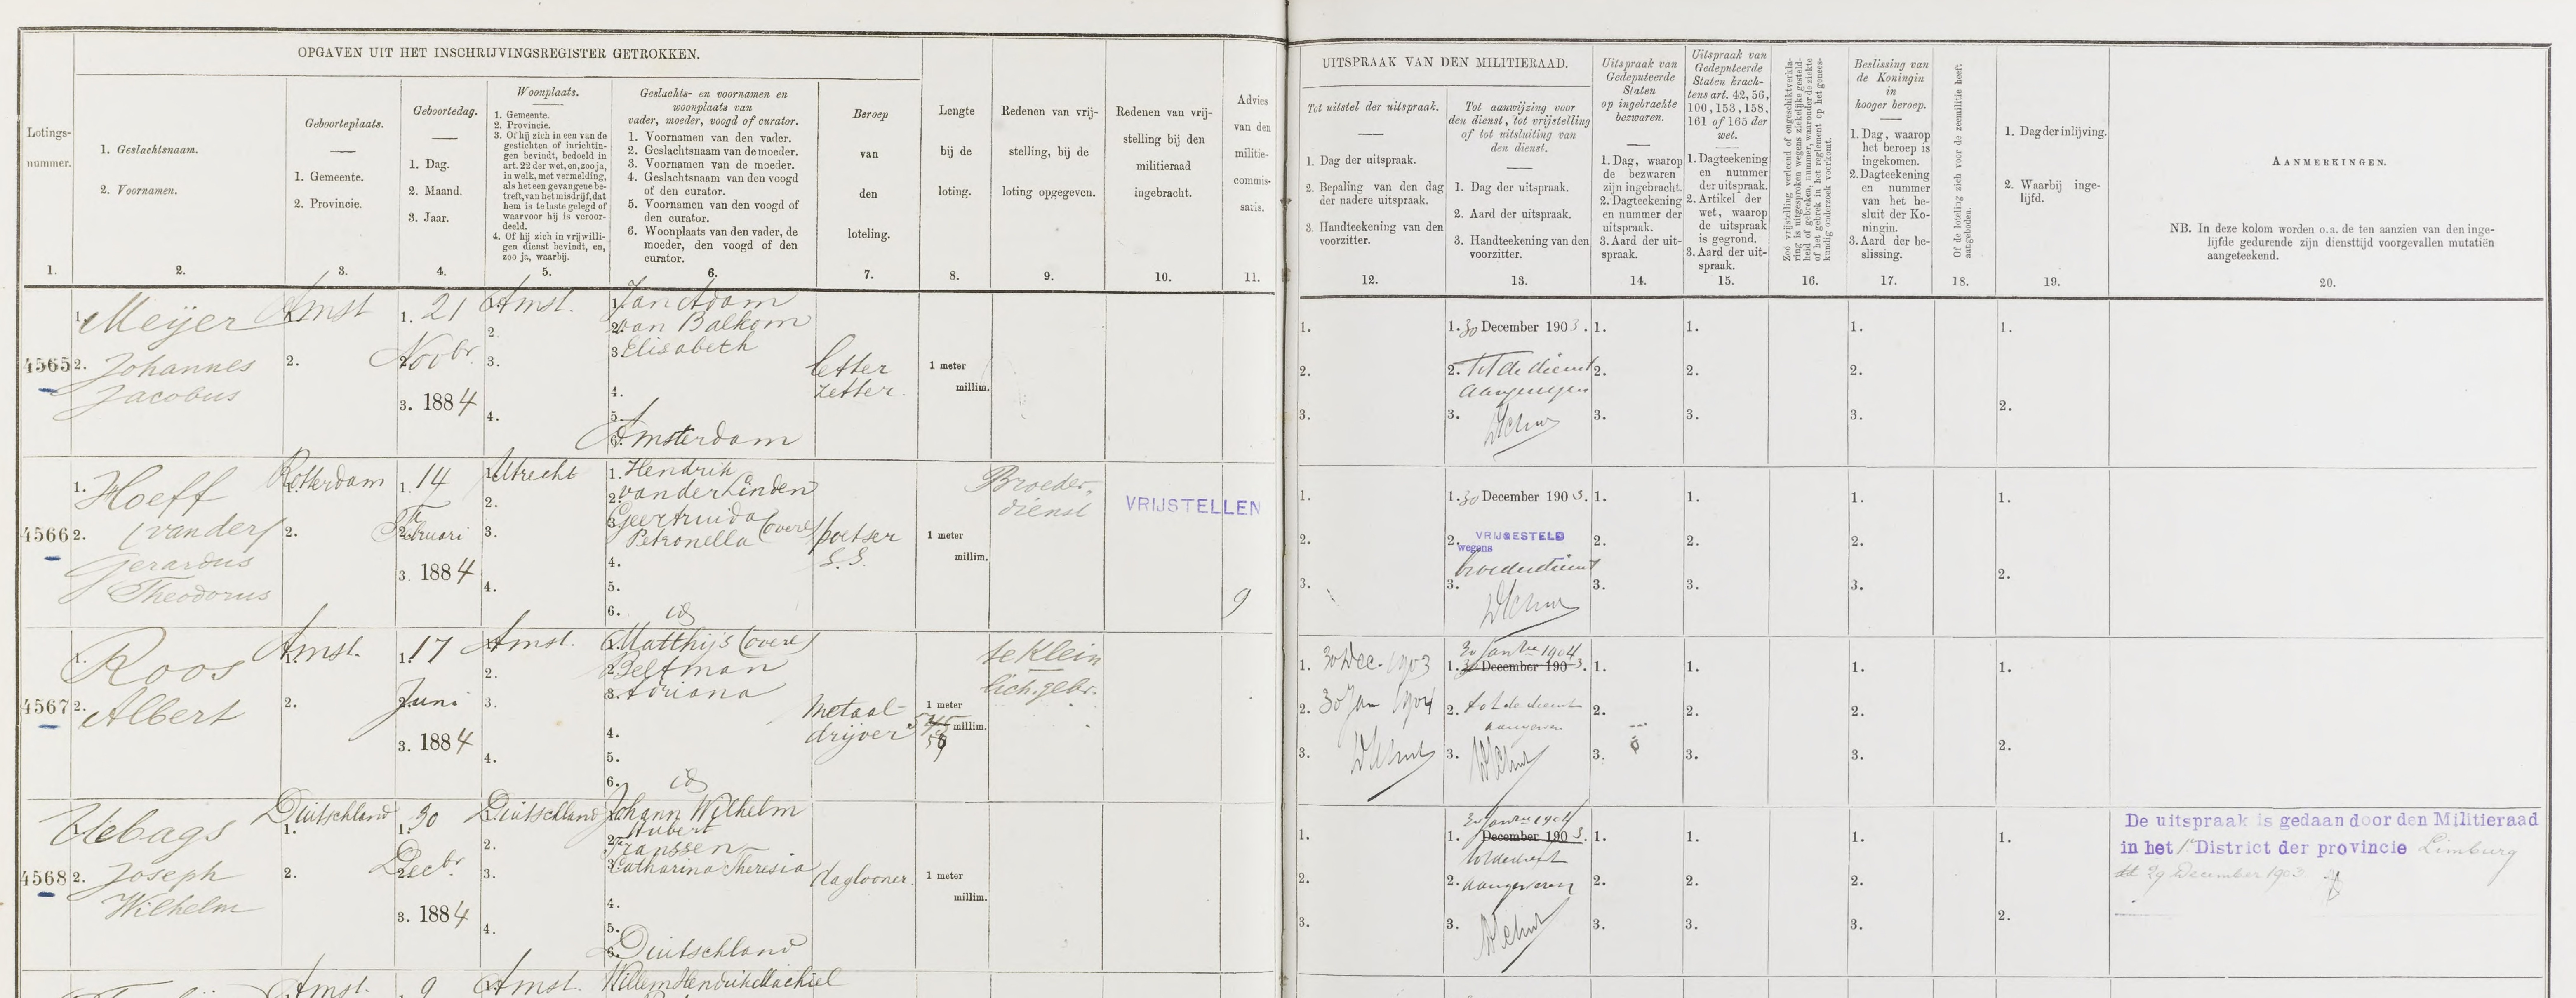 OPGAVEN UIT HET INSCHRIJVINGSREGISTER GETROKKEN.
Lotings-
nummer.
1.
1. Geslachtsnaam.
2. Voornamen.
2.
Geboorteplaats.
1. Gemeente.
2. Provincie.
3.
Geboortedag.
1. Dag.
2. Maand.
3. Jaar.
4.
Woonplaats.
1. Gemeente.
2. Provincie.
3. Of hij zich in een van de
gestichten of inrichtin-
gen bevindt, bedoeld in
art. 22 der wet, en, zoo ja,
in welk, met vermelding,
als het een gevangene be-
treft, van het misdrijf, dat
hem is te laste gelegd of
waarvoor hij is veroor-
deeld.
4. Of hij zich in vrijwilli-
gen dienst bevindt, en,
zoo ja, waarbij.
5.
Geslachts- en voornamen en
woonplaats van
vader, moeder, voogd of curator.
1. Voornamen van den vader.
2. Geslachtsnaam van de moeder.
3. Voornamen van de moeder.
4. Geslachtsnaam van den voogd
of den curator.
5. Voornamen van den voogd of
den curator.
6. Woonplaats van den vader, de
moeder, den voogd of den
curator.
6.
Beroep
van
den
loteling.
7.
Lengte
bij de
loting.
8.
Redenen van vrij-
stelling, bij de
loting opgegeven.
9.
Redenen van vrij-
stelling bij den
militieraad
ingebracht.
10.
Advies
van den
militie-
commis-
saris.
11.
UITSPRAAK VAN DEN MILITIERAAD.
Tot uitstel der uitspraak.
1. Dag der uitspraak.
2. Bepaling van den dag
der nadere uitspraak.
3. Handteekening van den
voorzitter.
12.
Tot aanwijzing voor
den dienst, tot vrijstelling
of tot uitsluiting van
den dienst.
1. Dag der uitspraak.
2. Aard der uitspraak.
3. Handteekening van den
voorzitter.
13.
Uitspraak van
Gedeputeerde
Staten
op ingebrachte
bezwaren.
1. Dag, waarop
de bezwaren
zijn ingebracht.
2. Dagteekening
en nummer der
uitspraak.
3. Aard der uit-
spraak.
14.
Uitspraak van
Gedeputeerde
Staten krach-
tens art. 42, 56,
100, 153, 158,
161 of 165 der
wet.
1. Dagteekening
en nummer
der uitspraak.
2. Artikel der
wet, waarop
de uitspraak
is gegrond.
3. Aard der uit-
spraak.
15.
Zoo vrijstelling verleend of ongeschiktverkla-
ring is uitgesproken wegens ziekelijke gesteld-
heid of gebreken, nummer, waaronder de ziekte
of het gebrek in het reglement op het genees-
kundig onderzoek voorkomt.
16.
Beslissing van
de Koningin
in
hooger beroep.
1. Dag, waarop
het beroep is
ingekomen.
2. Dagteekening
en nummer
van het be-
sluit der Ko-
ningin.
3. Aard der be-
slissing.
17.
Of de loteling zich voor de zeemilitie heeft
aangeboden.
18.
1. Dag der inlijving.
2. Waarbij inge-
lijfd.
19.
AANMERKINGEN.
NB. In deze kolom worden o.a. de ten aanzien van den inge-
lijfde gedurende zijn diensttijd voorgevallen mutatiën
aangeteekend.
20.
4565
1. Meijer
2. Johannes
Jacobus
1. Amst
2.
1. 21
2. Novbr.
3. 1884
1. Amst.
2.
3.
4.
1. Jan Adam
2. van Balkom
3. Elisabeth
4.
5.
6. Amsterdam
letter
zetter
1 meter
millim.
1.
2.
3.
1. 30 December 1903.
2. Tot de dienst
aangewezen
3.
1.
2.
3.
1.
2.
3.
1.
2.
3.
1.
2.
4566
1. Hoeff
2. (van der)
Gerardus
Theodorus
1. Rotterdam
2.
1. 14
2. Februari
3. 1884
1. Utrecht
2.
3.
4.
1. Hendrik
2. van der Linden
3. Geertruida
Petronella (overl)
4.
5.
6. id
poetser
S.S.
1 meter
millim.
Broeder-
dienst
VRIJSTELLEN
9
1.
2.
3.
1. 30 December 1903.
2. VRIJGESTELD
wegens
broederdienst
3.
1.
2.
3.
1.
2.
3.
1.
2.
3.
1.
2.
4567
1. Roos
2. Albert
1. Amst.
2.
1. 17
2. Juni
3. 1884
1. Amst.
2.
3.
4.
1. Matthijs (overl)
2. Beltman
3. Adriana
4.
5.
6. id
metaal-
drijver
1 meter
millim.
te Klein
lich. gebr.
1. 30 Dec. 1903
2. 30 Jan 1904
3.
30 Janrie 1904
1. 30 December 1903.
2. tot de dienst
aangewezen
3.
1.
2.
3.
1.
2.
3.
1.
2.
3.
1.
2.
4568
1. Uebags
2. Joseph
Wilhelm
1. Duitschland
2.
1. 30
2. Decbr.
3. 1884
1. Duitschland
2.
3.
4.
1. Johann Wilhelm
Hubert
2. Franssen
3. Catharina Theresia
4.
5.
6. Duitschland
daglooner
1 meter
millim.
1.
2.
3.
30 Janrie 1904
1. December 1903.
tot de dienst
2. aangewezen
3.
1.
2.
3.
1.
2.
3.
1.
2.
3.
1.
2.
De uitspraak is gedaan door den Militieraad
in het 1e District der provincie Limburg
dd 29 December 1903
Amst.
1. 9
Amst.
Willem Hendrik Machiel